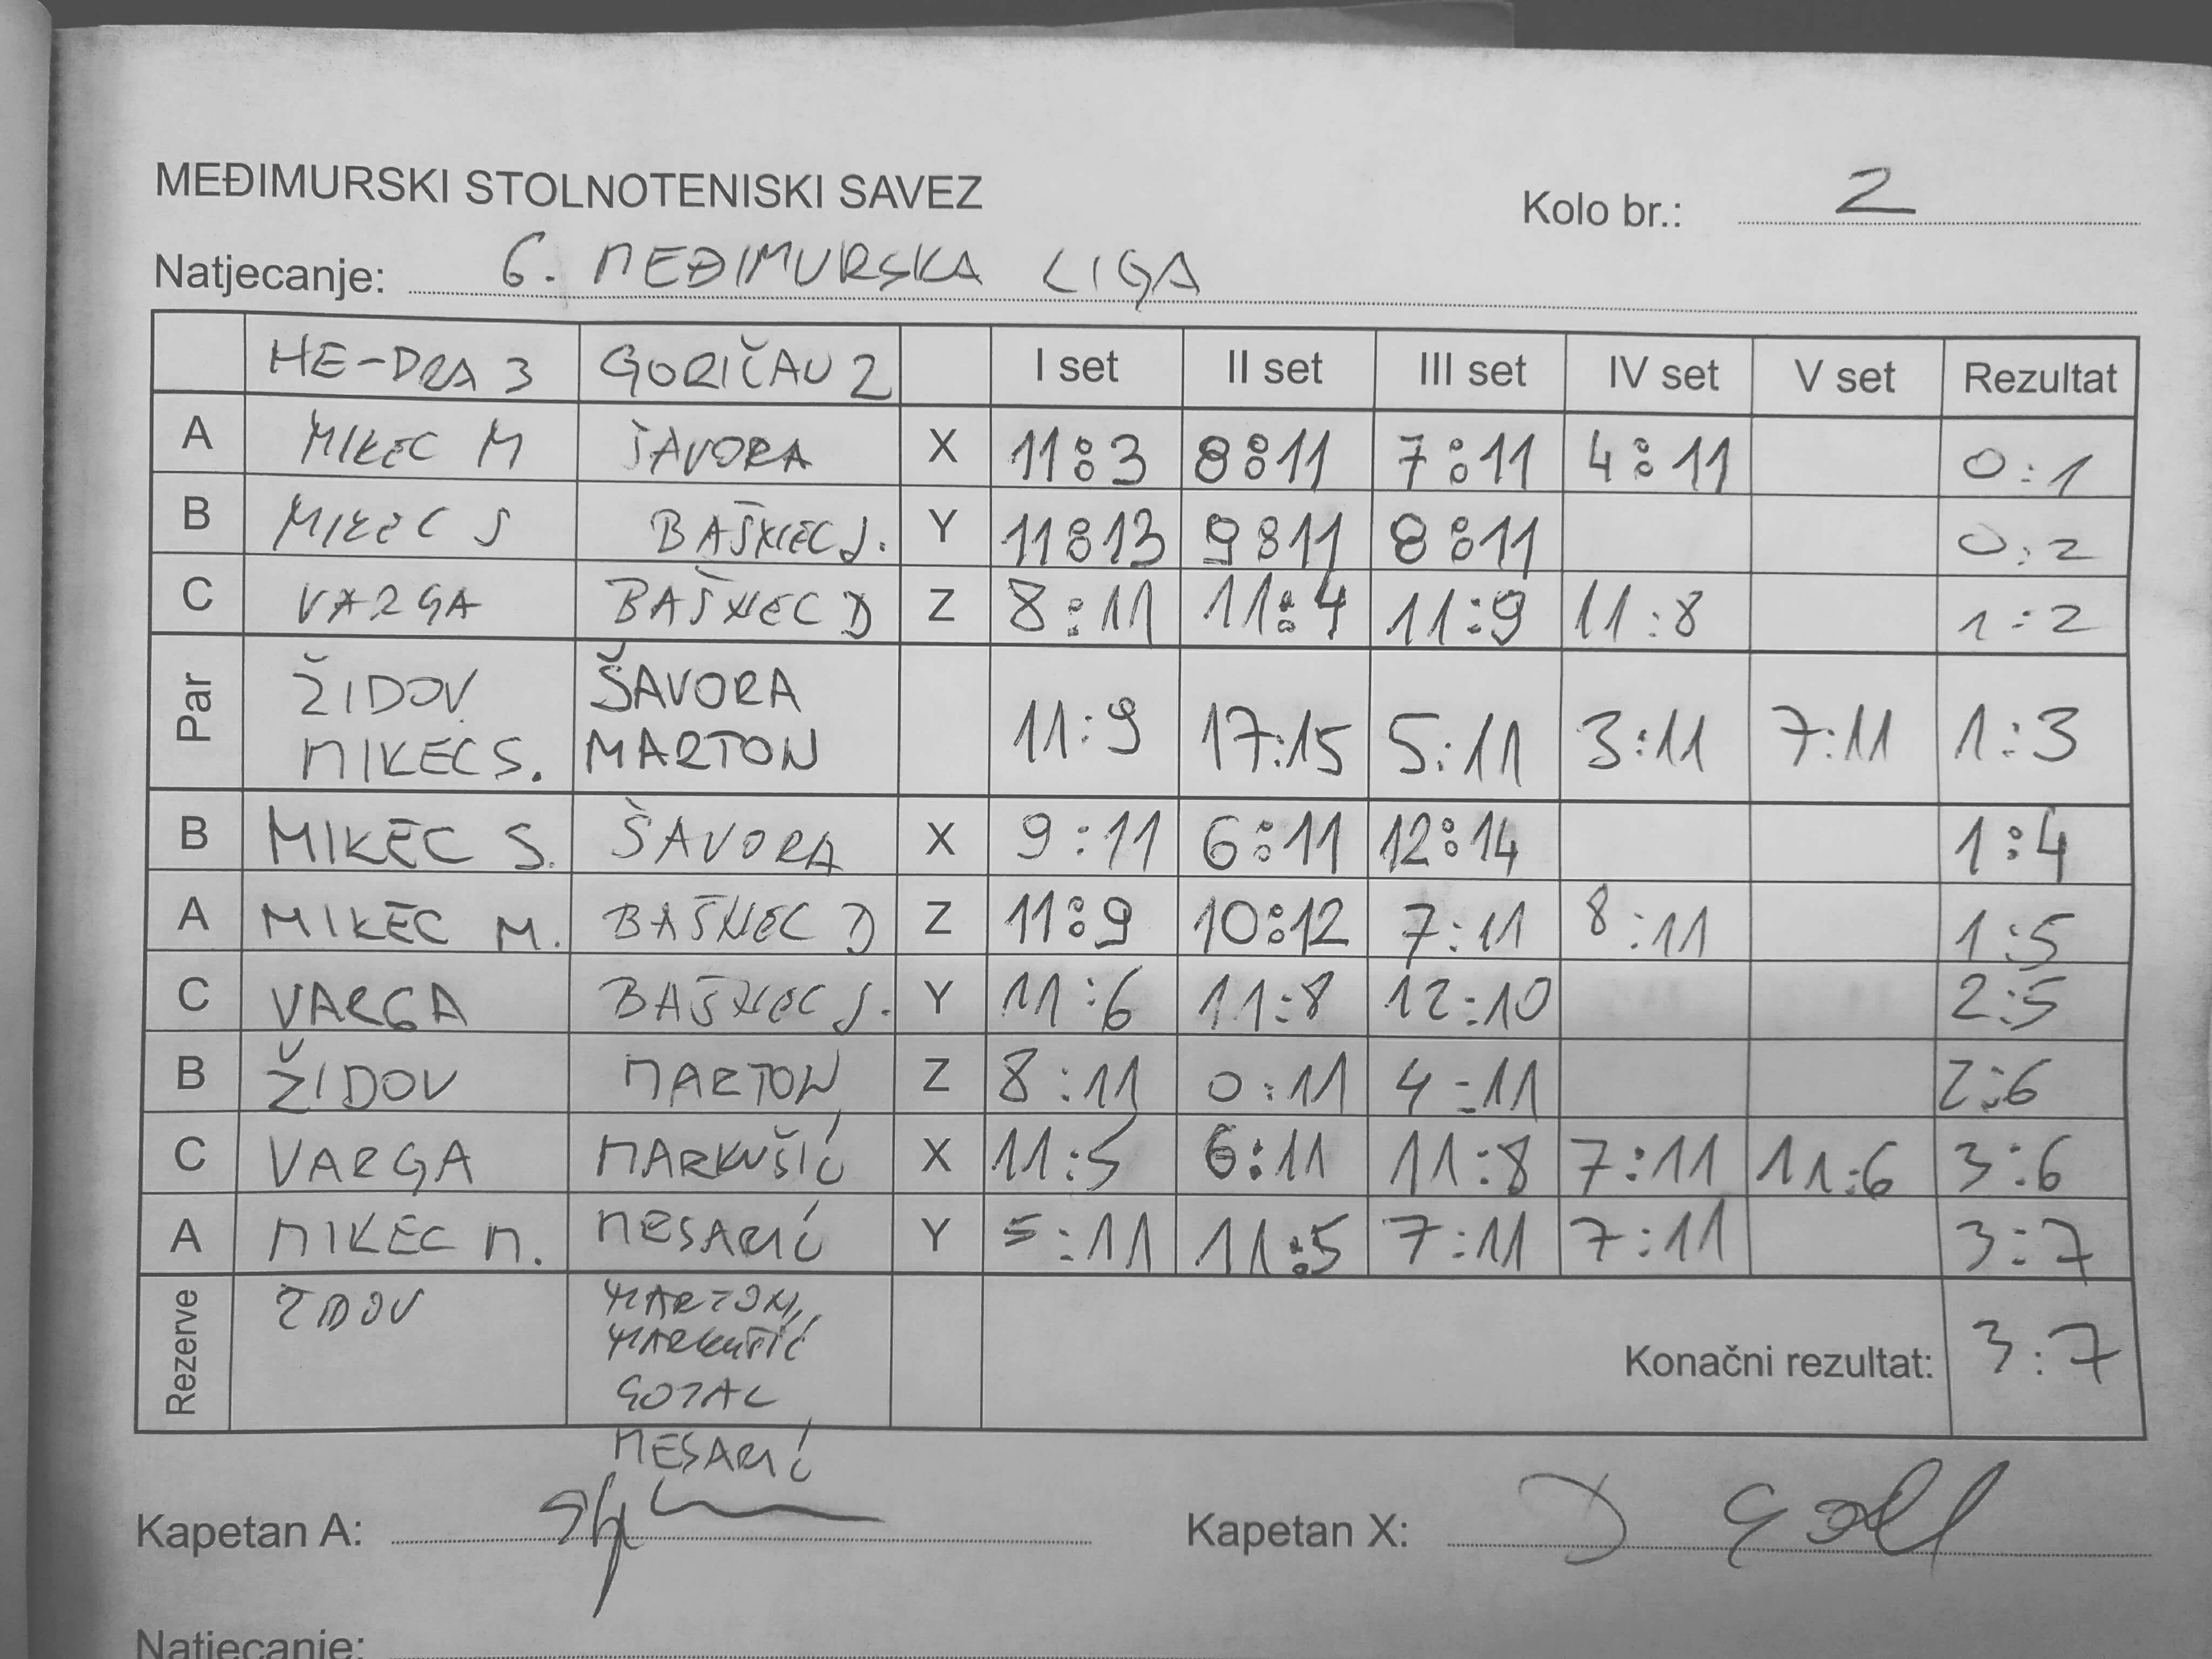 MEĐIMURSKI STOLNOTENISKI SAVEZ
Kolo br.: 2
Natjecanje: 6. MEĐIMURSKA LIGA
HE-DRA 3 GORIČAN 2 I set II set III set IV set V set Rezultat
A MIKEC M ŠAVORA X 11:3 8:11 7:11 4:11 0:1
B MIKEC S BAŠNEC J. Y 11:13 9:11 8:11 0:2
C VARGA BAŠNEC D Z 8:11 11:4 11:9 11:8 1:2
Par ŽIDOV MIKEC S. ŠAVORA MARTON 11:9 17:15 5:11 3:11 7:11 1:3
B MIKEC S. ŠAVORA X 9:11 6:11 12:14 1:4
A MIKEC M. BAŠNEC D Z 11:9 10:12 7:11 8:11 1:5
C VARGA BAŠNEC J. Y 11:6 11:8 12:10 2:5
B ŽIDOV MARTON Z 8:11 0:11 4:11 2:6
C VARGA MARKUŠIĆ X 11:5 6:11 11:8 7:11 11:6 3:6
A MIKEC M. MESARIĆ Y 5:11 11:5 7:11 7:11 3:7
Rezerve ŽIDOV MARTON,
MARKUŠIĆ
GOTAL
MESARIĆ
Konačni rezultat: 3:7
Kapetan A:
Kapetan X:
Natjecanje: